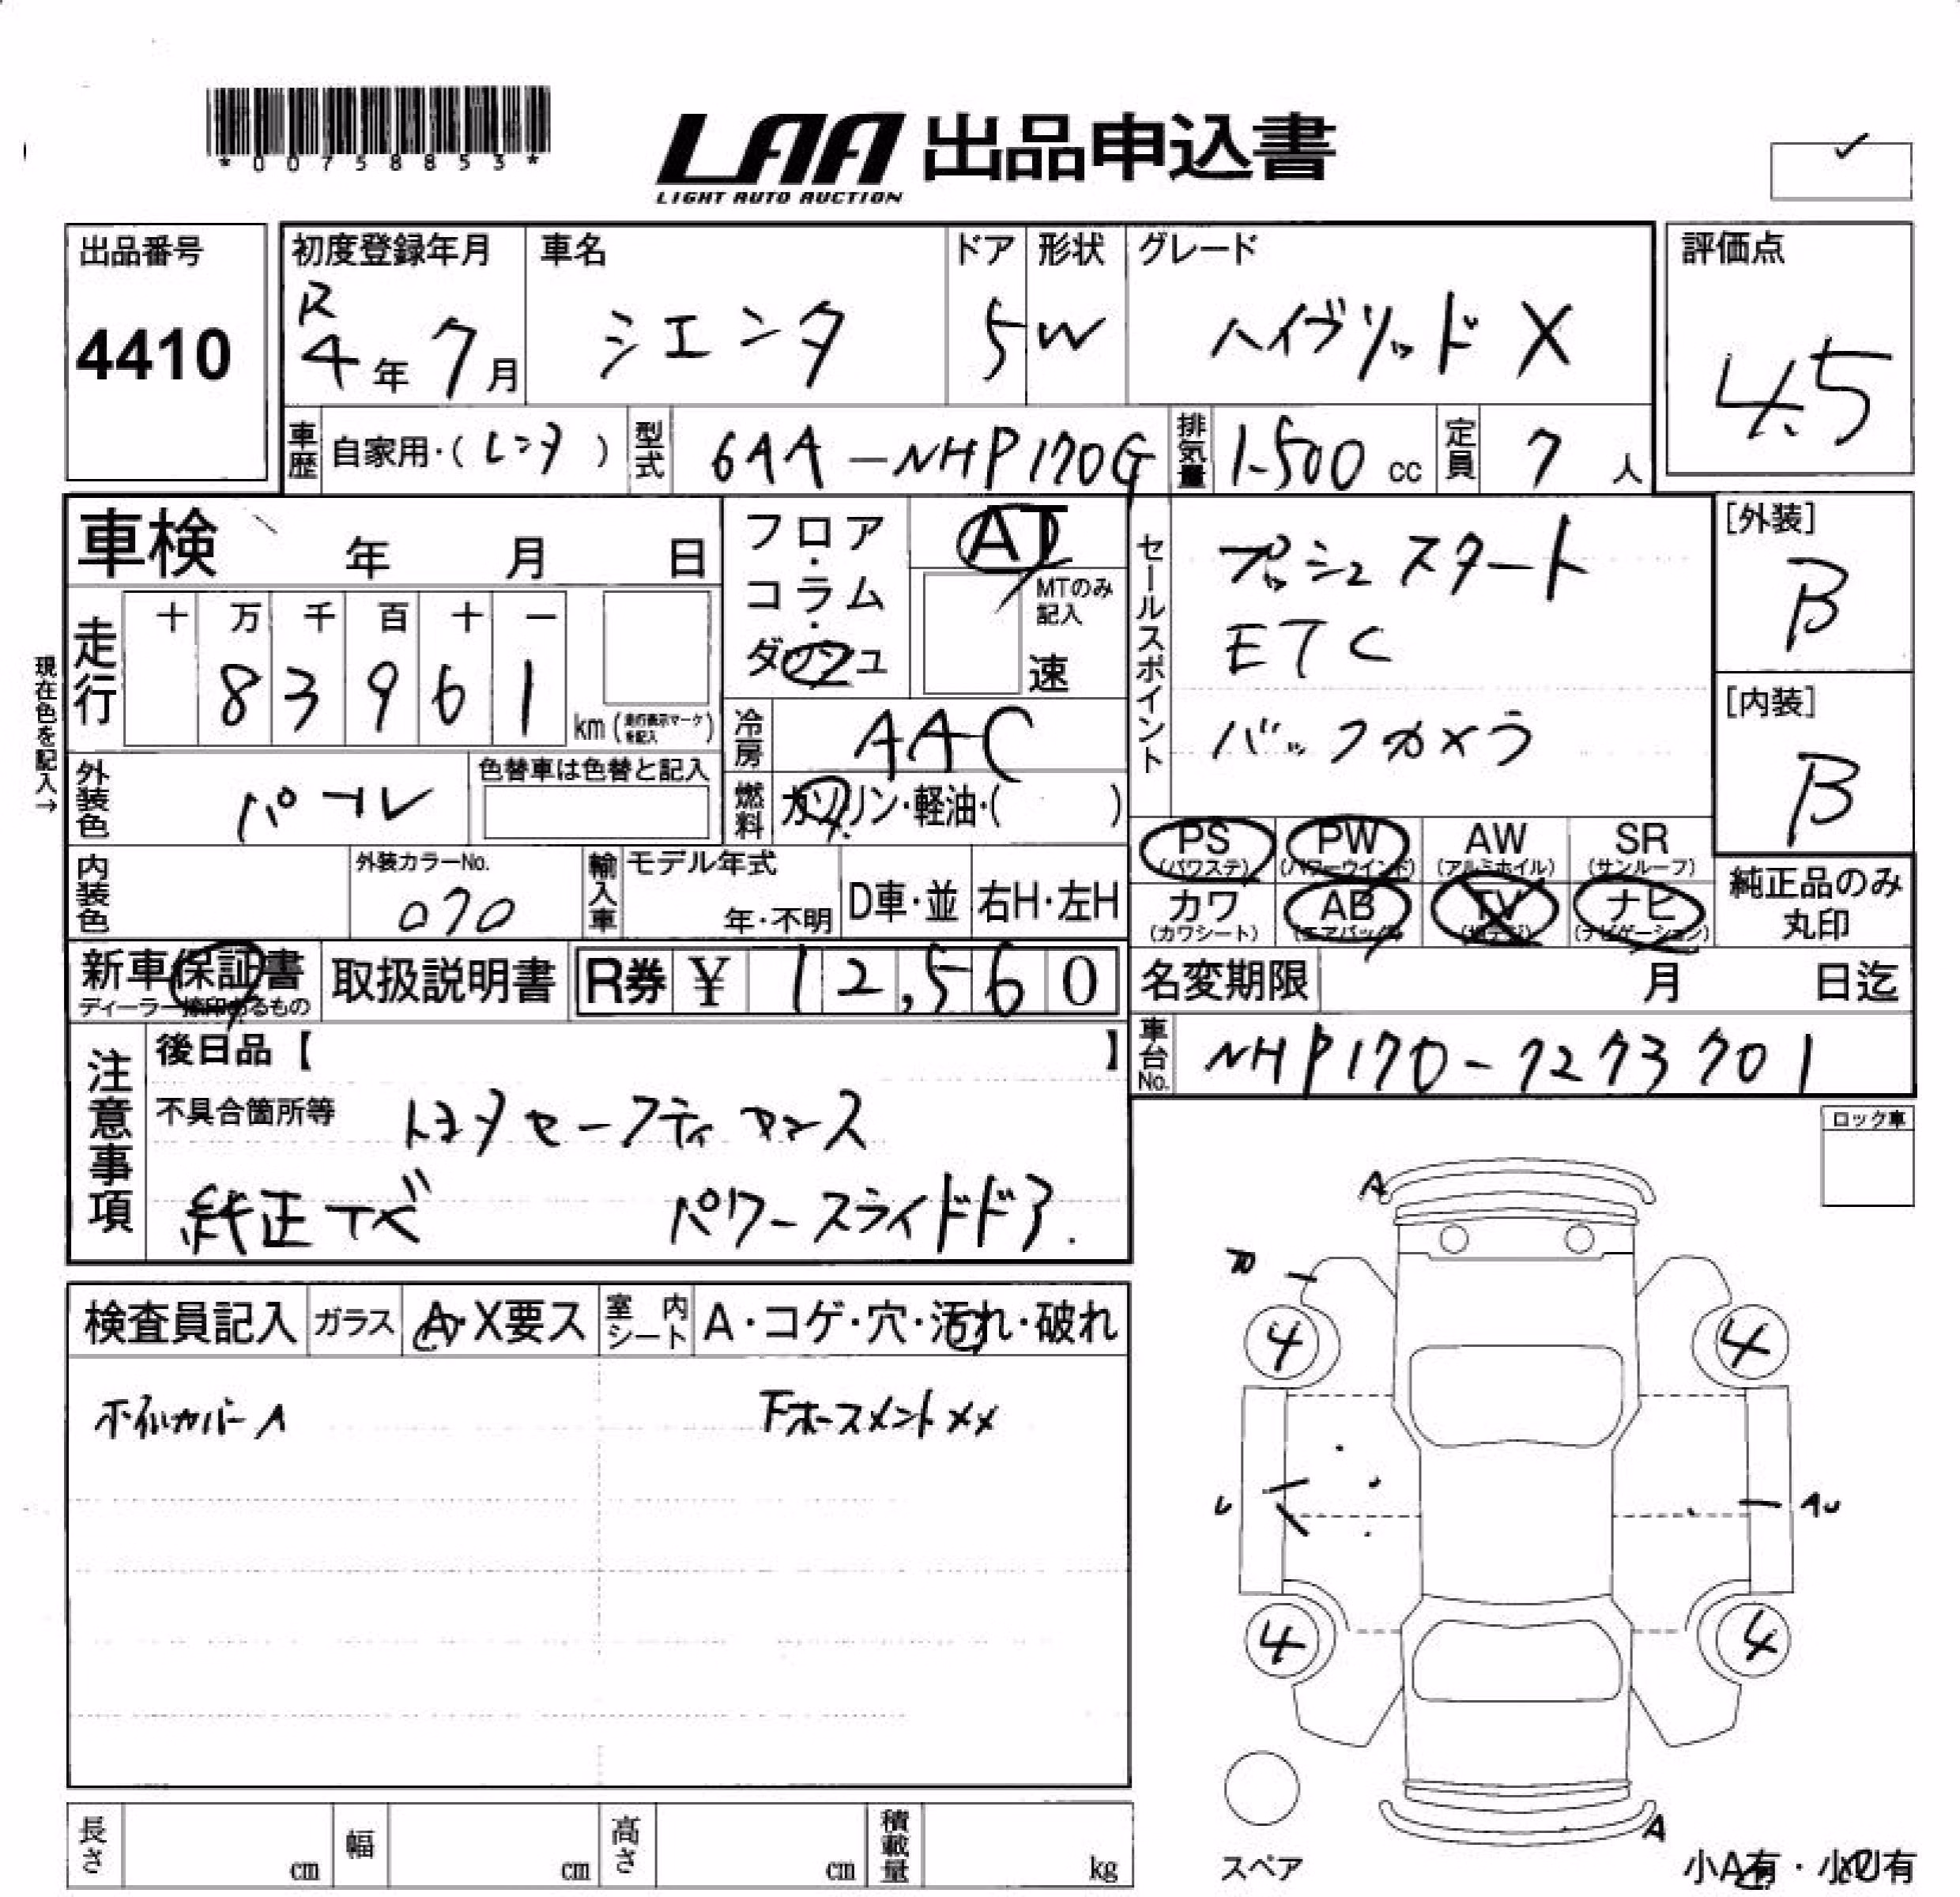 *00758853*
LAA 出品申込書
LIGHT AUTO AUCTION
出品番号
4410
初度登録年月
R4年 7月
車名
シエンタ
ドア
5
形状
W
グレード
ハイブリッド X
評価点
4.5
車歴 自家用・(レンタ)
型式 6AA-NHP170G
排気量 1.500 cc
定員 7 人
車検 年 月 日
現在色を記入→
走行
十 万 千 百 十 一
8 3 9 6 1
km(走行表示マークを記入)
フロア・コラム・ダッシュ
AT
MTのみ記入
速
冷房 AAC
燃料 ガソリン・軽油・( )
外装色 パール
色替車は色替と記入
内装色
外装カラーNo.
070
輸入車
モデル年式
年・不明
D車・並
右H・左H
セールスポイント
プッシュスタート
ETC
バックカメラ
[外装]
B
[内装]
B
PS (パワステ)
PW (パワーウインド)
AW (アルミホイル)
SR (サンルーフ)
カワ (カワシート)
AB (エアバック)
TV
ナビ (ナビゲーション)
純正品のみ丸印
新車保証書
ディーラー捺印あるもの
取扱説明書
R券 ¥ 12,560
名変期限 月 日迄
車台No. NHP170-7273701
注意事項
後日品【 】
不具合箇所等 トヨタセーフティセンス
純正ナビ パワースライドドア.
ロック車
検査員記入
ガラス A・X要ス
室内シート A・コゲ・穴・汚れ・破れ
ホイルカバーA
下ホースメント××
A
4 4
U
AU
4 4
A
スペア
小A有・小U有
長さ cm
幅 cm
高さ cm
積載量 kg